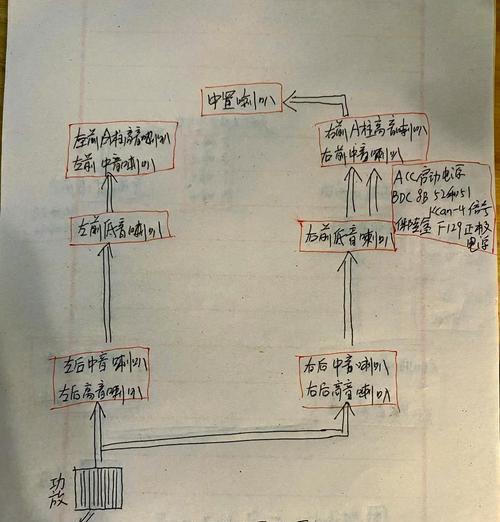 中置喇叭
左前A柱高音喇叭
左前中音喇叭
右前A柱高音喇叭
右前中音喇叭
ACC启动电源
BDC 8B 52和51
Kcan-4信号
保险盒 F129正极
电源
左前低音喇叭
右前低音喇叭
左后中音喇叭
左后高音喇叭
右后中音喇叭
右后高音喇叭
功放